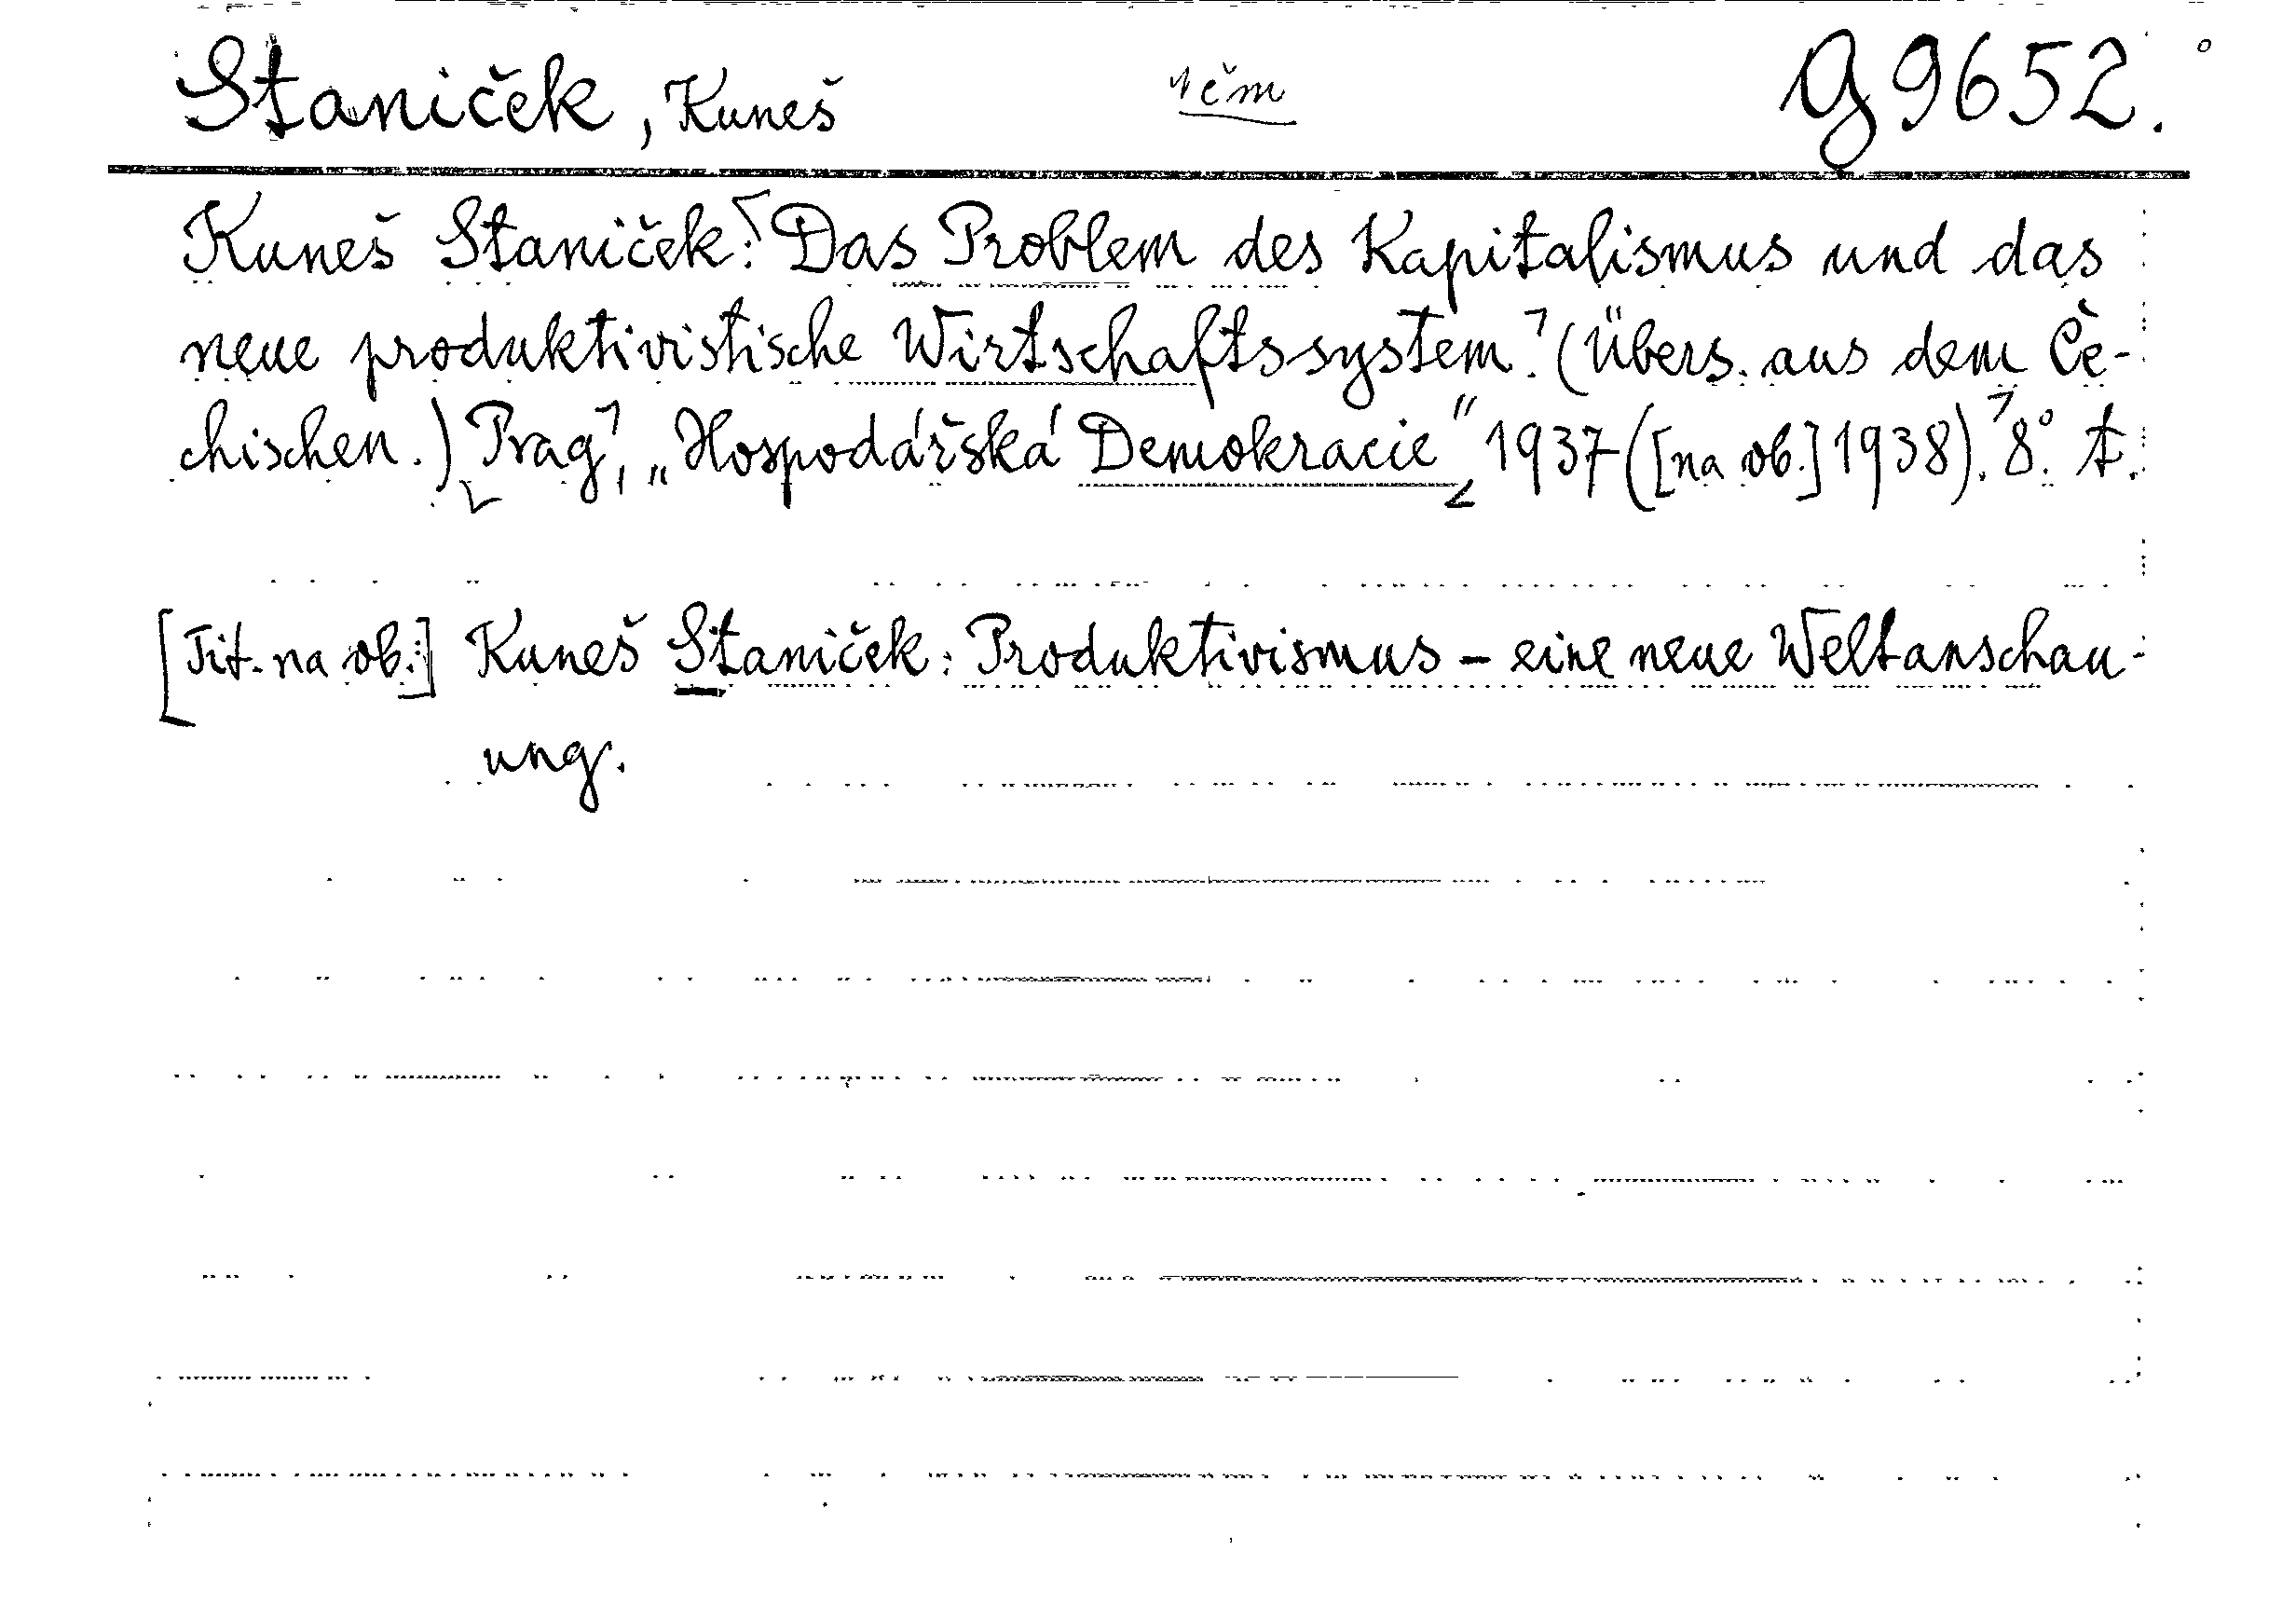 Staniček, Kuneš něm G 9652.
Kuneš Staniček: Das Problem des Kapitalismus und das
neue produktivistische Wirtschaftssystem. (Übers. aus dem Če-
chischen.) Prag, „Hospodářská Demokracie" 1937 ([na ob.] 1938). 8°. A.
[Tit. na ob.:] Kuneš Staniček: Produktivismus – eine neue Weltanschau-
ung.